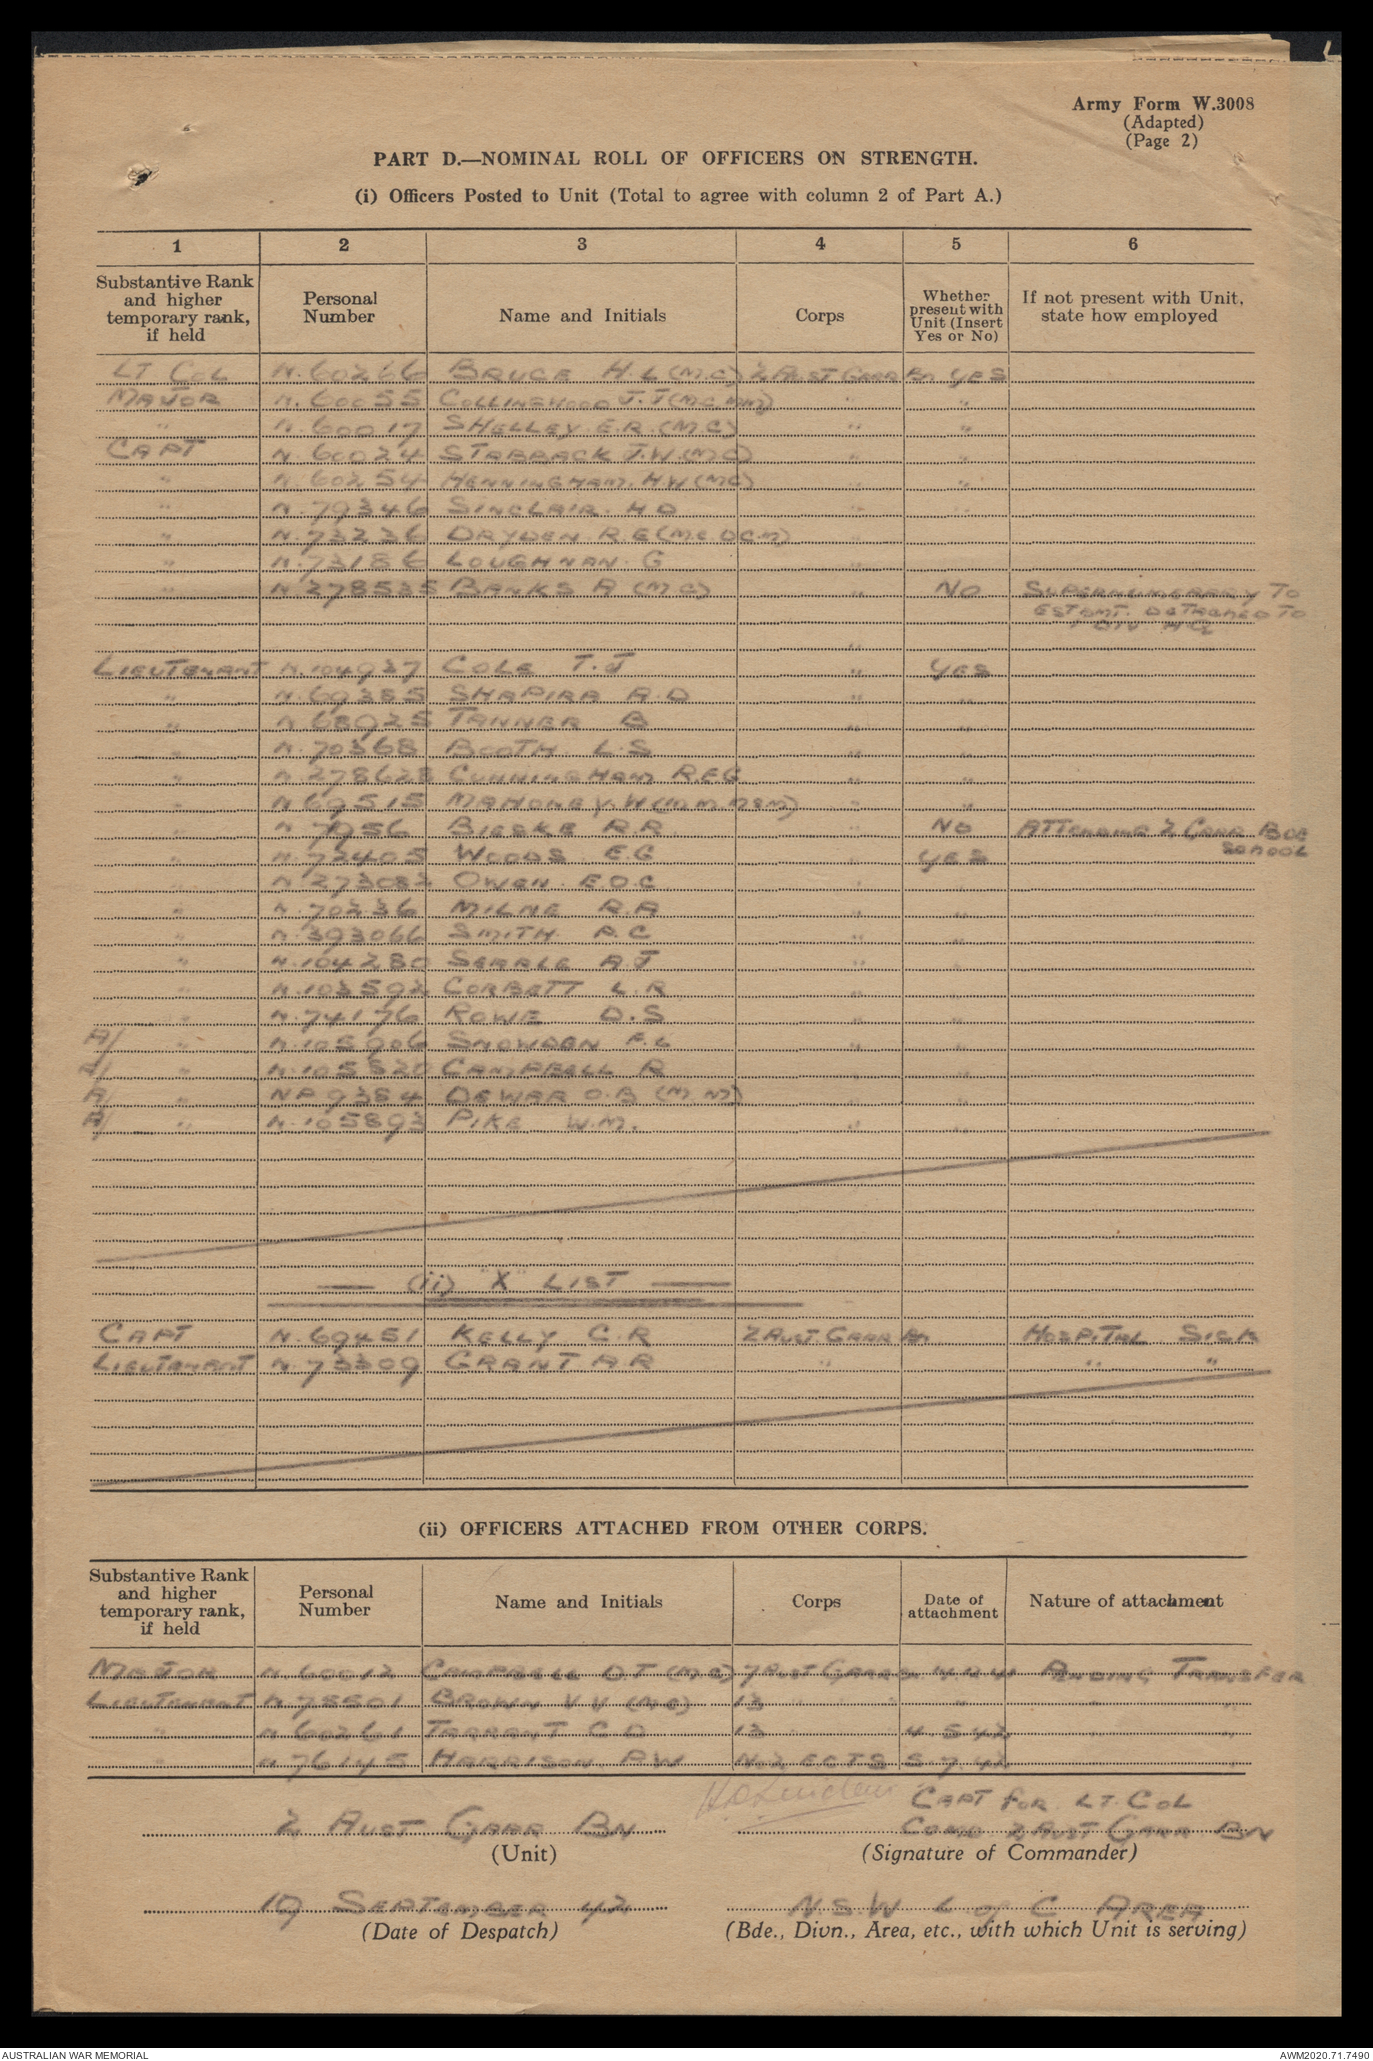 Army Form W.3008
(Adapted)
(Page 2)
PART D.—NOMINAL ROLL OF OFFICERS ON STRENGTH.
(i) Officers Posted to Unit (Total to agree with column 2 of Part A.)
1 2 3 4 5 6
Substantive Rank and higher temporary rank, if held Personal Number Name and Initials Corps Whether present with Unit (Insert Yes or No) If not present with Unit, state how employed
LT COL N.60266 BRUCE H.L (M.C) 2 AUST GARR BN YES
MAJOR N.60055 COLLINGWOOD J.J (M.C. MM) " "
" N.60017 SHELLEY E.R. (M.C) " "
CAPT N.60024 STABBACK J.W. (M.C) " "
" N.60254 HENNINGHAM. H.W (M.C) " "
" N.79346 SINCLAIR. H D " "
" N.73236 DRYDEN R.E (M.C DCM) "
" N.73186 LOUGHNAN G "
" N.278535 BANKS A (M.C) " NO SUPERNUMERARY TO
ESTAMT. DETACHED TO
1 DIV HQ
"
LIEUTENANT N.104937 COLE T.J " YES
" N.69385 SHAPIRA A.D " "
" N.68925 TANNER B " "
" N.70368 BOOTH L.S " "
" N.278628 CUNNINGHAM R.E.G " "
" N.69515 MAHONEY. W (M.M. MSM) " "
" N.7956 BIESKE R.R " NO ATTENDING 2 GARR BDE
SCHOOL
" N.72405 WOODS E.G " YES
" N.273082 OWEN E.O.C " "
" N.70236 MILNE R.A " "
" N.393066 SMITH A.C " "
" N.104280 SEARLE A.J " "
" N.103592 CORBETT L.R " "
" N.74176 ROWE D.S " "
A/ " N.105906 SNOWDEN F.L " "
A/ " N.105520 CAMPBELL R " "
A/ " NP9384 DEWAR O.B (M.M) " "
A/ " N.105893 PIKE W.M. " "
(ii) "X" LIST
CAPT N.69451 KELLY C.R 2 AUST. GARR BN HOSPITAL SICK
LIEUTENANT N.73309 GRANT A R " " "
(ii) OFFICERS ATTACHED FROM OTHER CORPS.
Substantive Rank and higher temporary rank, if held Personal Number Name and Initials Corps Date of attachment Nature of attachment
MAJOR N.60012 CAMPBELL D.T (M.C) 7 AUST GARR BN PENDING TRANSFER
LIEUTENANT N.78501 BROWN V V (M.C) 13 " " " "
" N.60261 TARRANT C D 13 " 4.5.42 " "
" N.76145 HARRISON P W No2 ECTS 5.7.42 " "
CAPT FOR LT. COL
2 AUST GARR BN COMD 2 AUST GARR BN
(Unit) (Signature of Commander)
19 SEPTEMBER 42 N.S.W L of C AREA
(Date of Despatch) (Bde., Divn., Area, etc., with which Unit is serving)
AUSTRALIAN WAR MEMORIAL AWM2020.71.7490